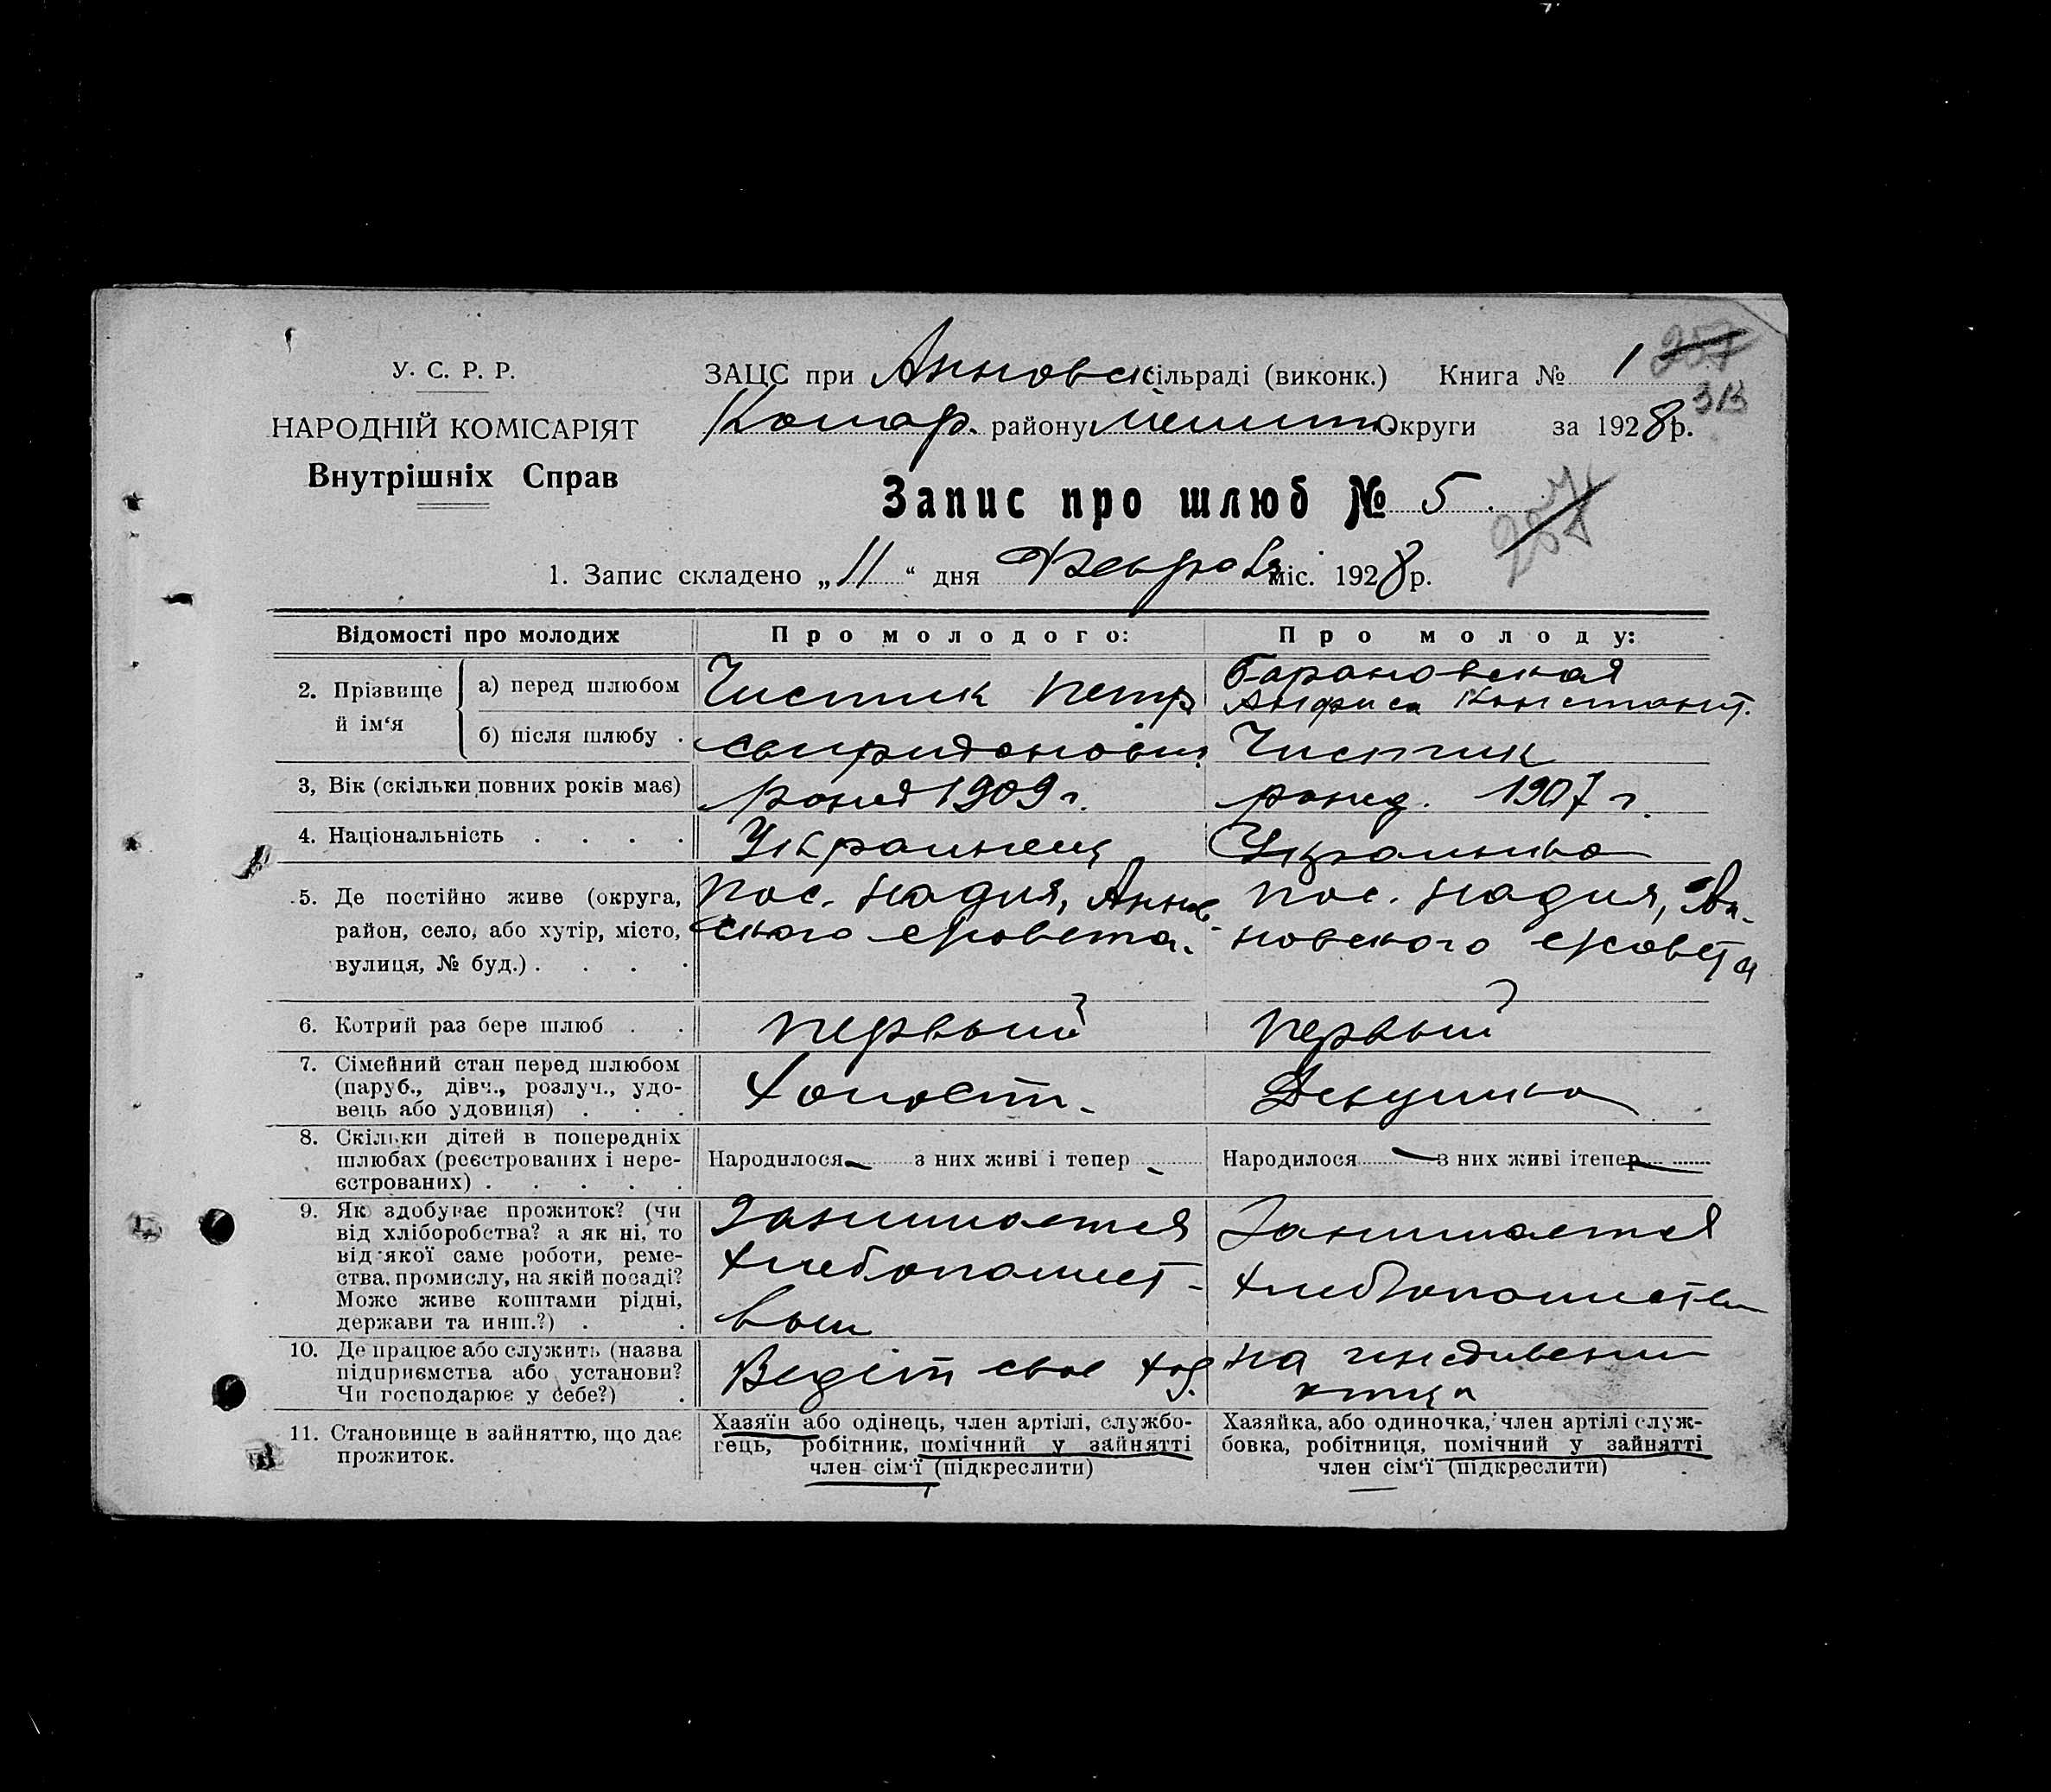 У. С. Р. Р.
НАРОДНІЙ КОМІСАРІЯТ
Внутрішніх Справ
ЗАЦС при Анновск сільраді (виконк.) Книга № 1 257
313
Комар. району Округи за 1928 р.
Запис про шлюб № 5. 257
1. Запис складено „11“ дня Февраля міс. 1928 р.
Відомості про молодих Про молодого: Про молоду:
2. Прізвище й ім'я
а) перед шлюбом Чистик Петр Барановская
Анфиса Констант.
б) після шлюбу . Спиридонович Чистик
3, Вік (скільки повних років має) рожд 1909 г. рожд. 1907 г.
4. Національність . . . . Украинец Украинка
5. Де постійно живе (округа, пос. Надия, Аннов- пос. Надия, Ан-
район, село, або хутір, місто, ского с/совета. новского с/совета
вулиця, № буд.) . . . .
6. Котрий раз бере шлюб . . первый первый
7. Сімейний стан перед шлюбом
(паруб., дівч., розлуч., удо- холост. Девушка
вець або удовиця) . . .
8. Скільки дітей в попередніх
шлюбах (реєстрованих і нере- Народилося — з них живі і тепер - Народилося — з них живі і тепер —
єстрованих) . . . . .
9. Як здобуває прожиток? (чи Занимается Занимается
від хліборобства? а як ні, то
від якої саме роботи, реме- хлебопашест- хлебопашеством
ства, промислу, на якій посаді?
Може живе коштами рідні, вом
держави та инш.?) . .
10. Де працює або служить (назва Ведёт свое хоз. на иждивении
підприємства або установи? отца
Чи господарює у себе?) .
11. Становище в зайняттю, що дає
прожиток.
Хазяїн або одінець, член артілі, службо-
вець, робітник, помічний у зайнятті
член сім'ї (підкреслити)
Хазяйка, або одиночка, член артілі служ-
бовка, робітниця, помічний у зайнятті
член сім'ї (підкреслити)